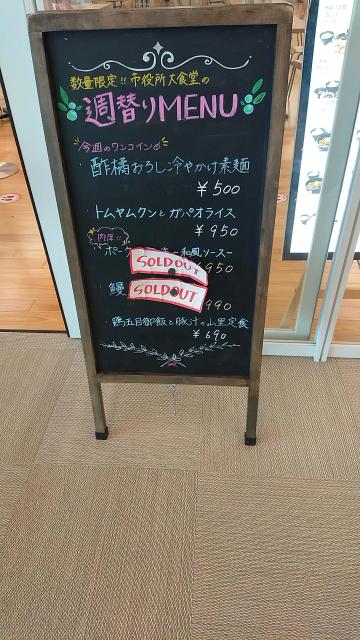 数量限定!! 市役所大食堂の
週替りMENU
今週のワンコイン
酢橘おろし冷やかけ素麺
¥500
トムヤムクンとガパオライス
¥950
肉厚!!
ポー
キー和風ソース
SOLD OUT
950
鰻
SOLD OUT
990
鶏五目御飯と豚汁の山里定食
¥690